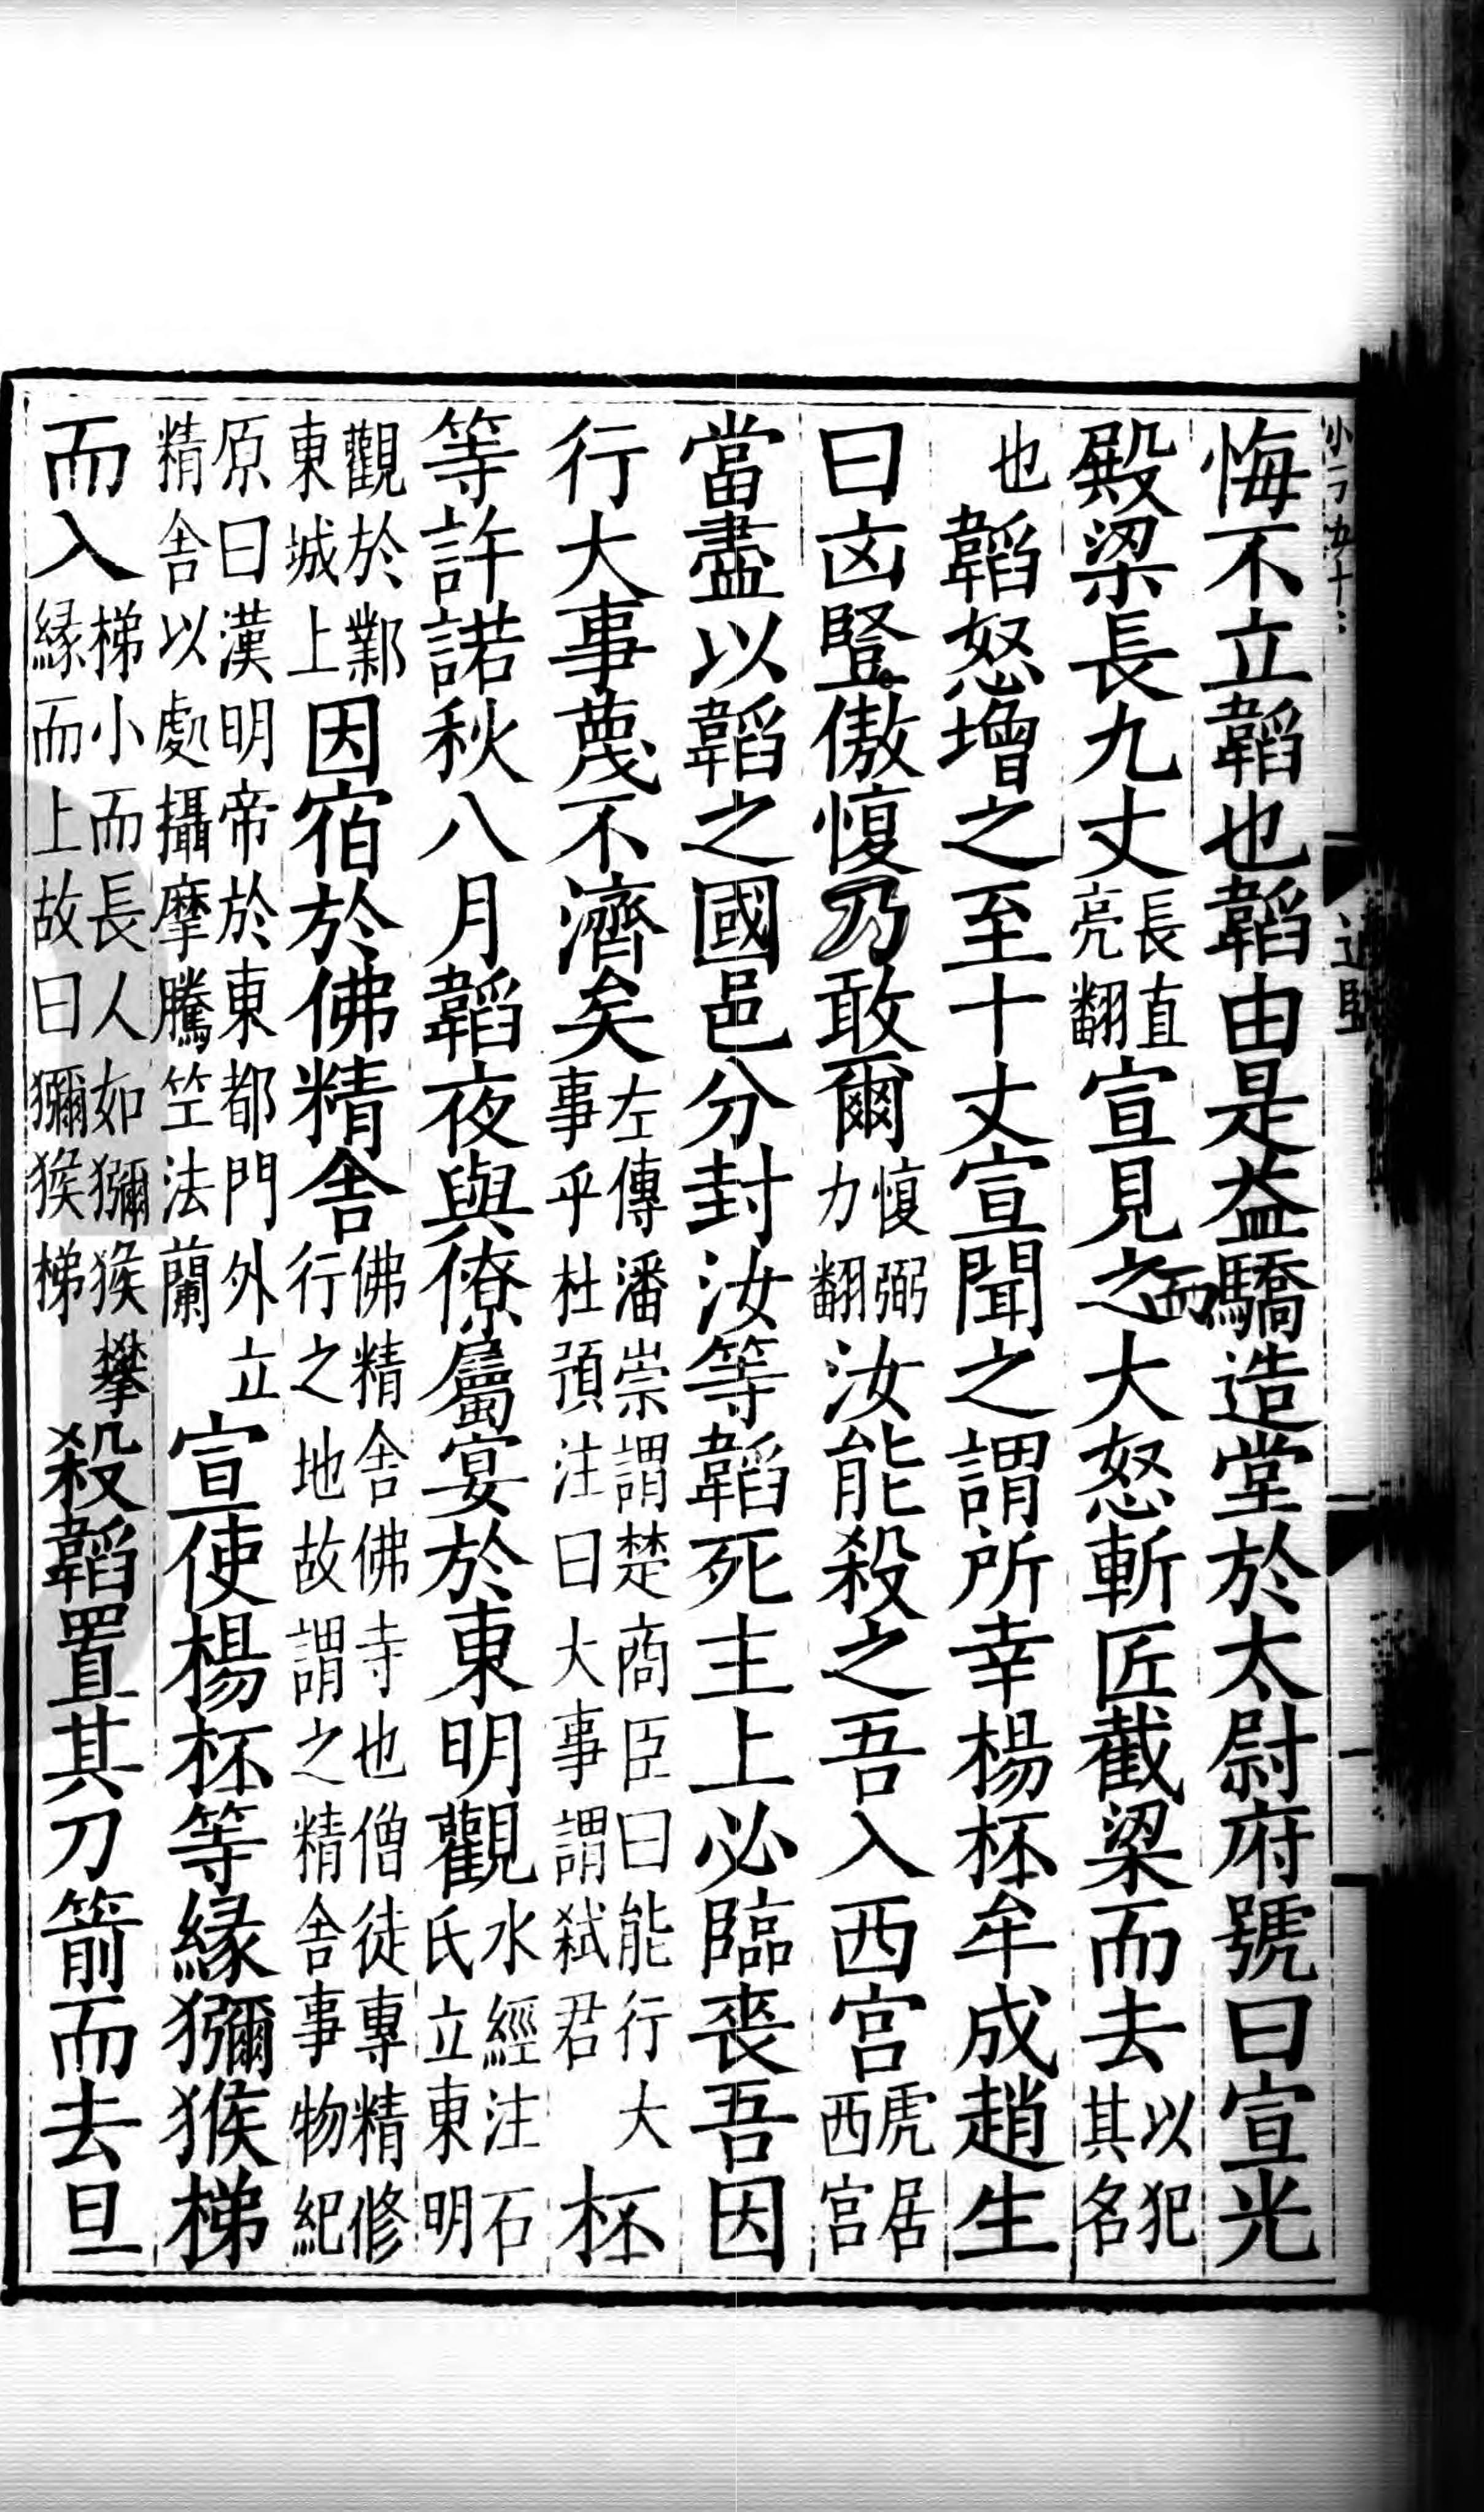 悔不立韜也韜由是益驕造堂於太尉府號曰宣光
殿梁長九丈長直亮翻宣見之而大怒斬匠截梁而去以犯其名
也韜怒增之至十丈宣聞之謂所幸楊柸牟成趙生
曰凶豎傲愎乃敢爾愎弼力翻汝能殺之吾入西宮虎居西宮
當盡以韜之國邑分封汝等韜死主上必臨喪吾因
行大事蔑不濟矣左傳潘崇謂楚商臣曰能行大事乎杜預注曰大事謂弒君柸
等許諾秋八月韜夜與僚屬宴於東明觀水經注石氏立東明
觀於鄴東城上因宿於佛精舍佛精舍佛寺也僧徒專精修行之地故謂之精舍事物紀
原曰漢明帝於東都門外立精舍以處攝摩騰竺法蘭宣使楊柸等緣獼猴梯
而入梯小而長人如獼猴攀緣而上故曰獼猴梯殺韜置其刀箭而去旦